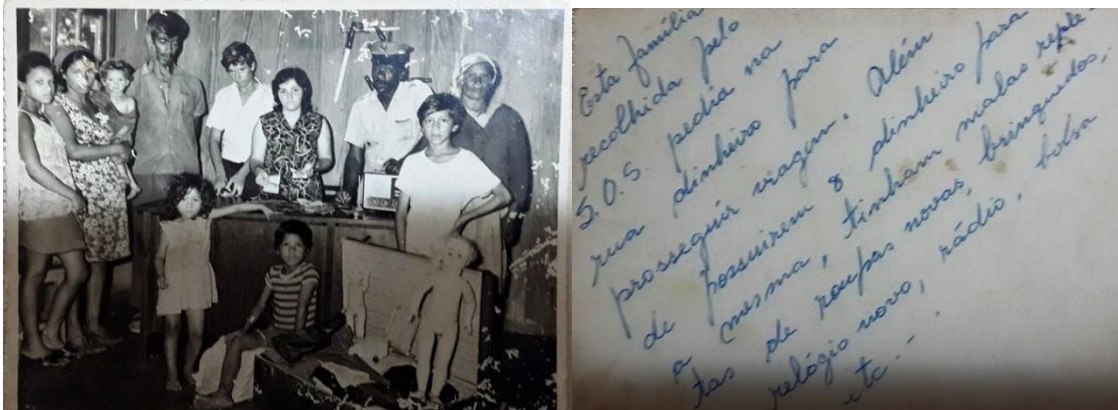 Esta família
recolhida pelo
S.O.S. pedia na
rua dinheiro para
prosseguir viagem. Além
de possuirem o dinheiro para
a mesma, tinham malas reple-
tas de roupas novas, brinquedos,
relógio novo, rádio, bolsa
etc.-